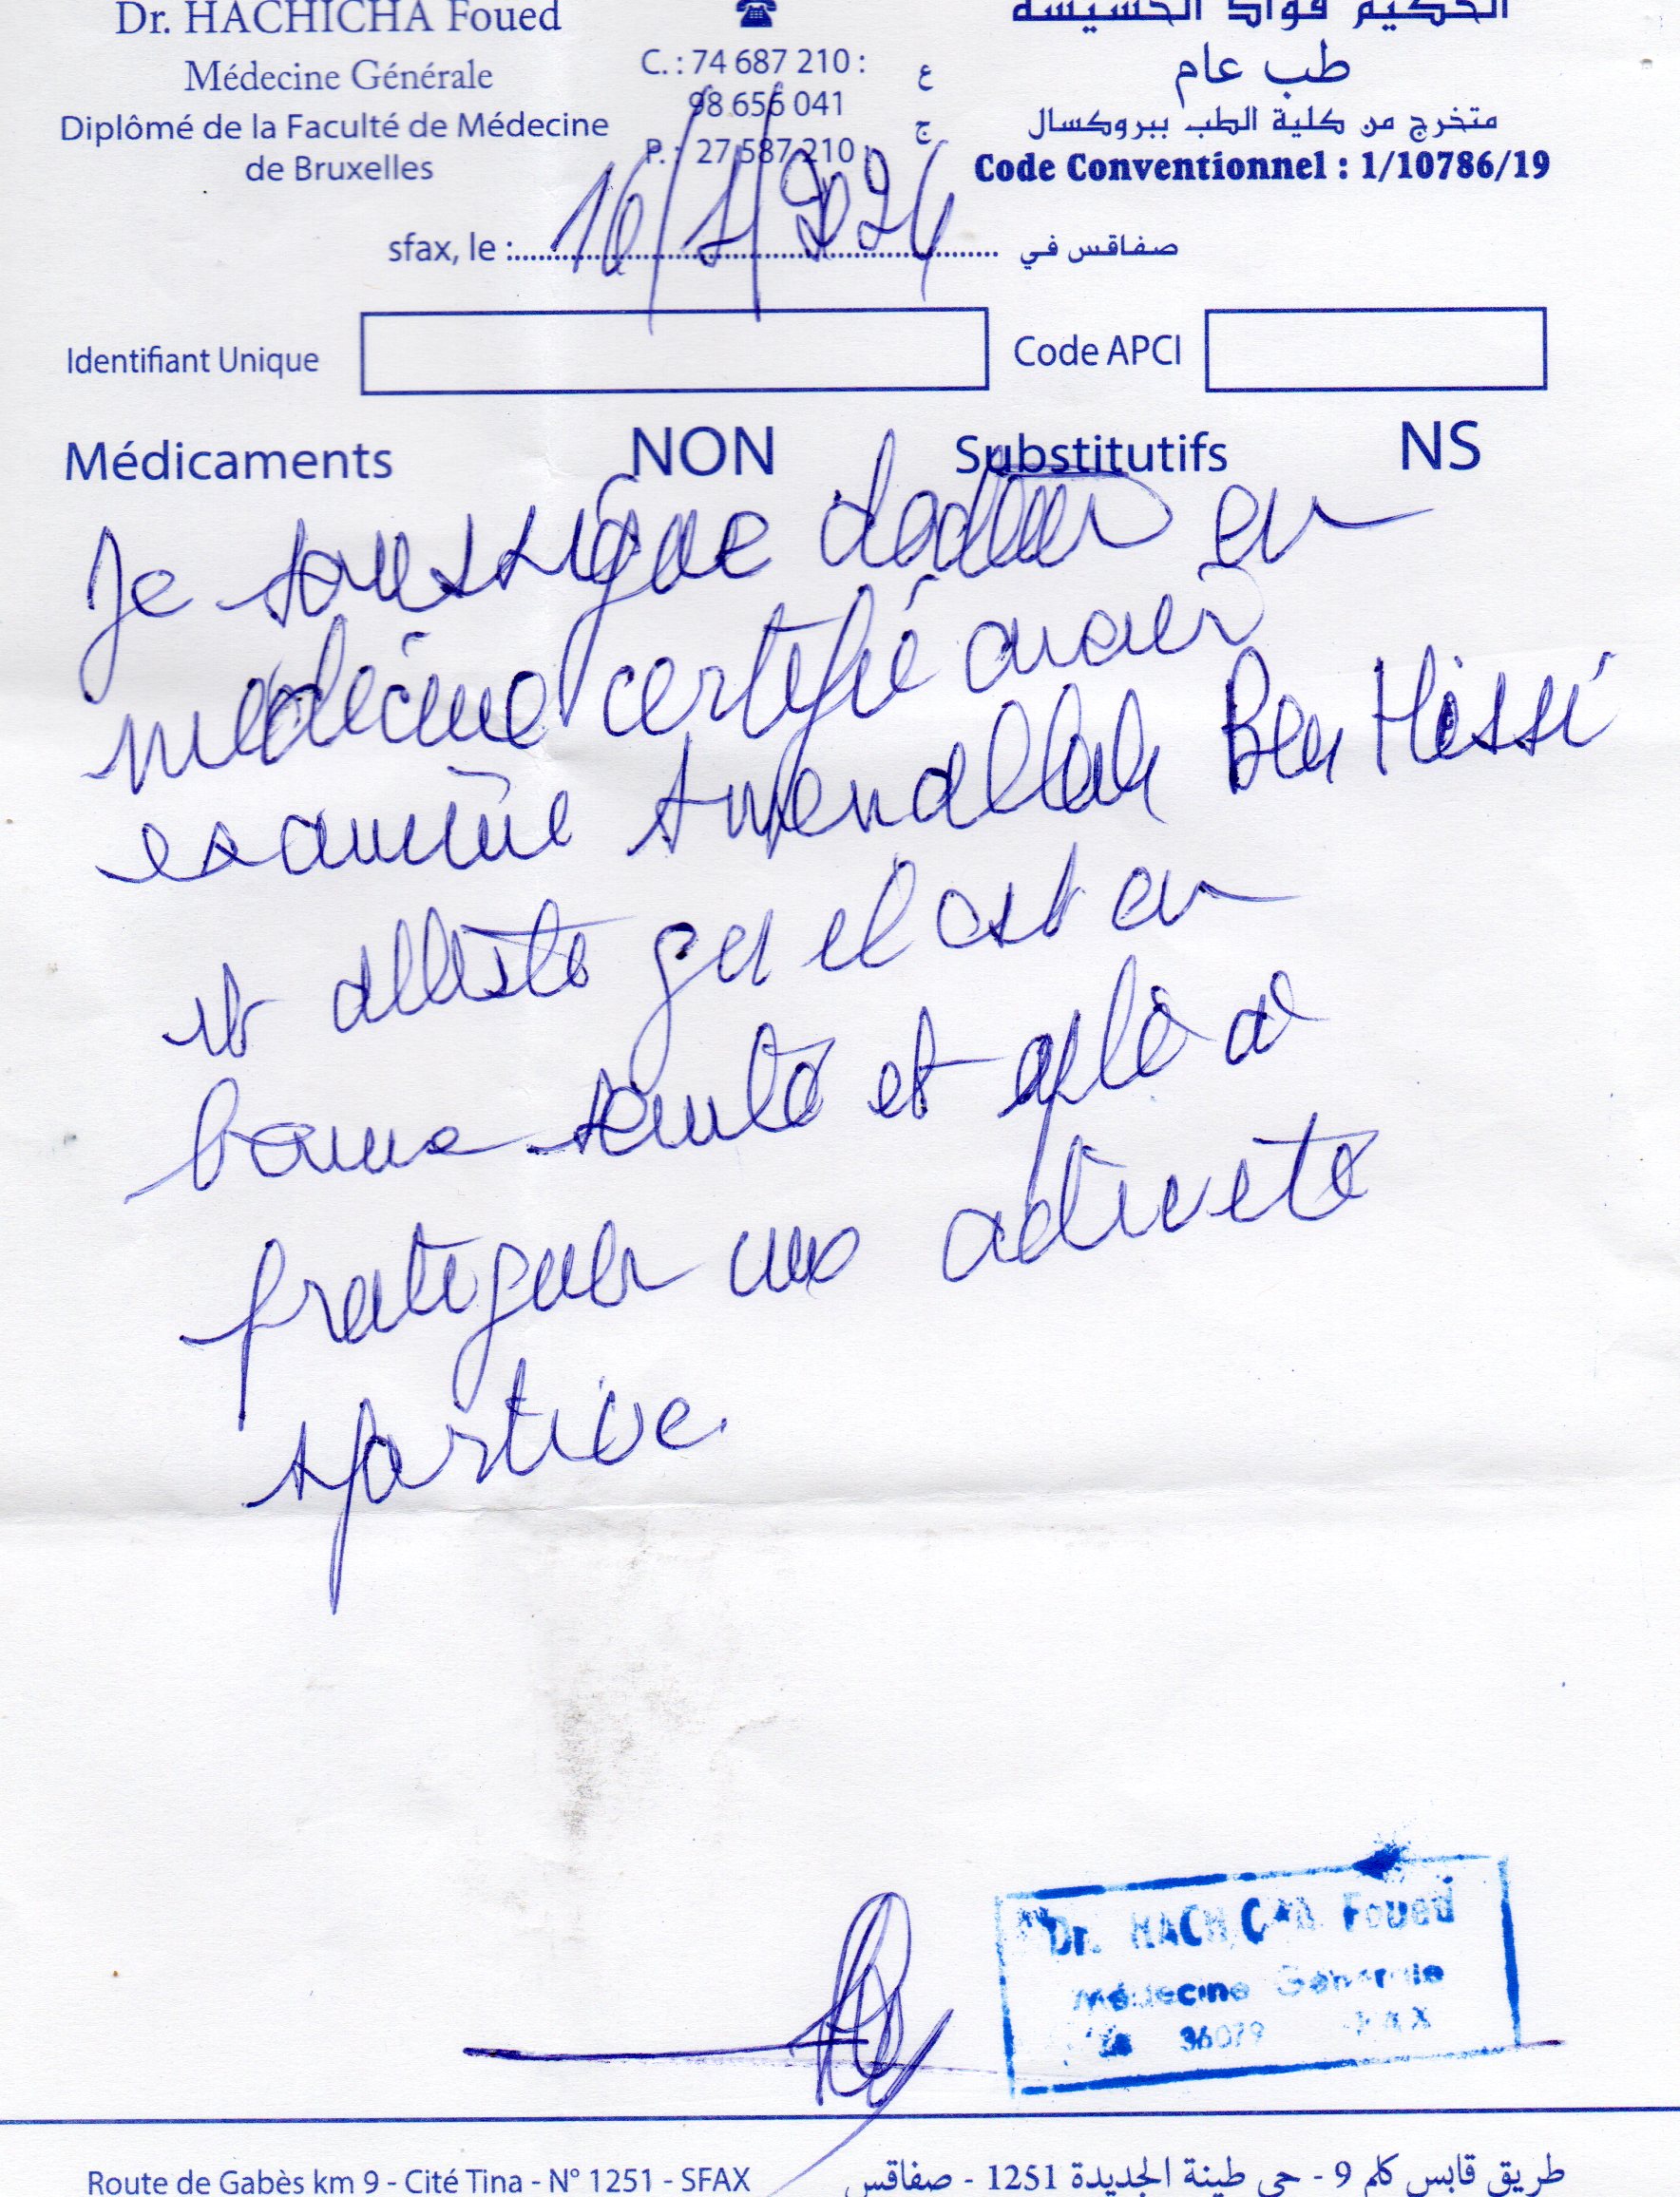 Dr. HACHICHA Foued
Médecine Générale
Diplômé de la Faculté de Médecine
de Bruxelles
C. : 74 687 210 : ع
98 656 041
P. : 27 587 210 : ج
الحكيم فؤاد الحشيشة
طب عام
متخرج من كلية الطب ببروكسال
Code Conventionnel : 1/10786/19
sfax, le : 16/1/2024 صفاقس في
Identifiant Unique Code APCI
Médicaments NON Substitutifs NS
Je soussigne docteur en
médecine certifié avoir
examiné Ben Hissi
et atteste qu il est en
bonne santé et apte a
pratiquer une activité
sportive.
Dr. HACHICHA Foued
Médecine Générale
36079 SFAX
Route de Gabès km 9 - Cité Tina - N° 1251 - SFAX
طريق قابس كلم 9 - حي طينة الجديدة 1251 - صفاقس